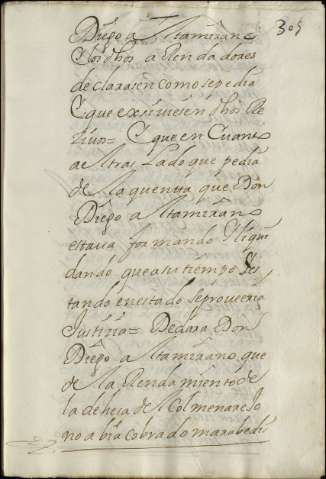 305
Diego Altamirano
Y los dhos arrendadores
declarasen como se pedia
y que exsiviesen dhos Re
zivos = Y que en Cuanto
al traslado que pedia
de la quenta que Don
Diego Altamirano
estava formando y liqui
dando, que a su tiempo y es
tando en estado se proveeria
Justizia = Declara Don
Diego Altamirano que
de la Renda miento de
la dehesa del Colmenarejo
no abia cobrado marabedi